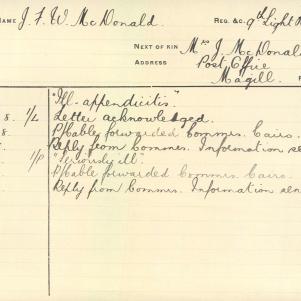 NAME J. F. W. McDonald. REG. &C. 9th Light
NEXT OF KIN Mrs J. McDonald
ADDRESS Post Office
Magill.
"Ill-appendicitis".
8. 1/L Letter acknowledged.
8. P/Cable forwarded Commrs. Cairo.
Reply from Commrs. Information
1/P "Seriously ill"
P/Cable forwarded Commrs Cairo.
Reply from Commrs. Information